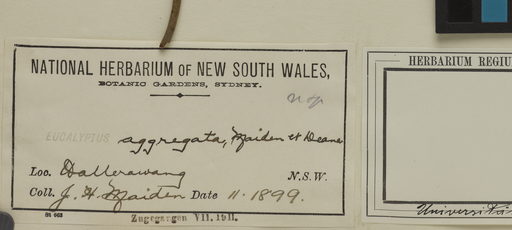 NATIONAL HERBARIUM OF NEW SOUTH WALES,
BOTANIC GARDENS, SYDNEY.
EUCALYPTUS aggregata, Maiden et Deane
Loc. Wallerawang N.S.W.
Coll. J. H. Maiden Date 11.1899.
Zugegangen VII. 1911.
HERBARIUM REGIU
Universita